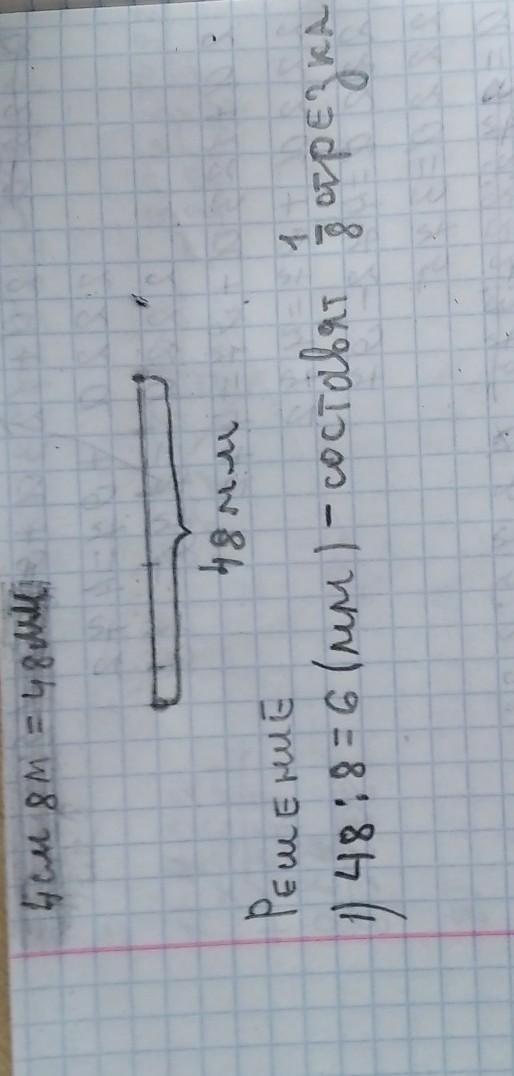 4см 8м = 48мм
48 мм
Решение
1) 48 : 8 = 6 (мм) - составят 1/8 отрезка